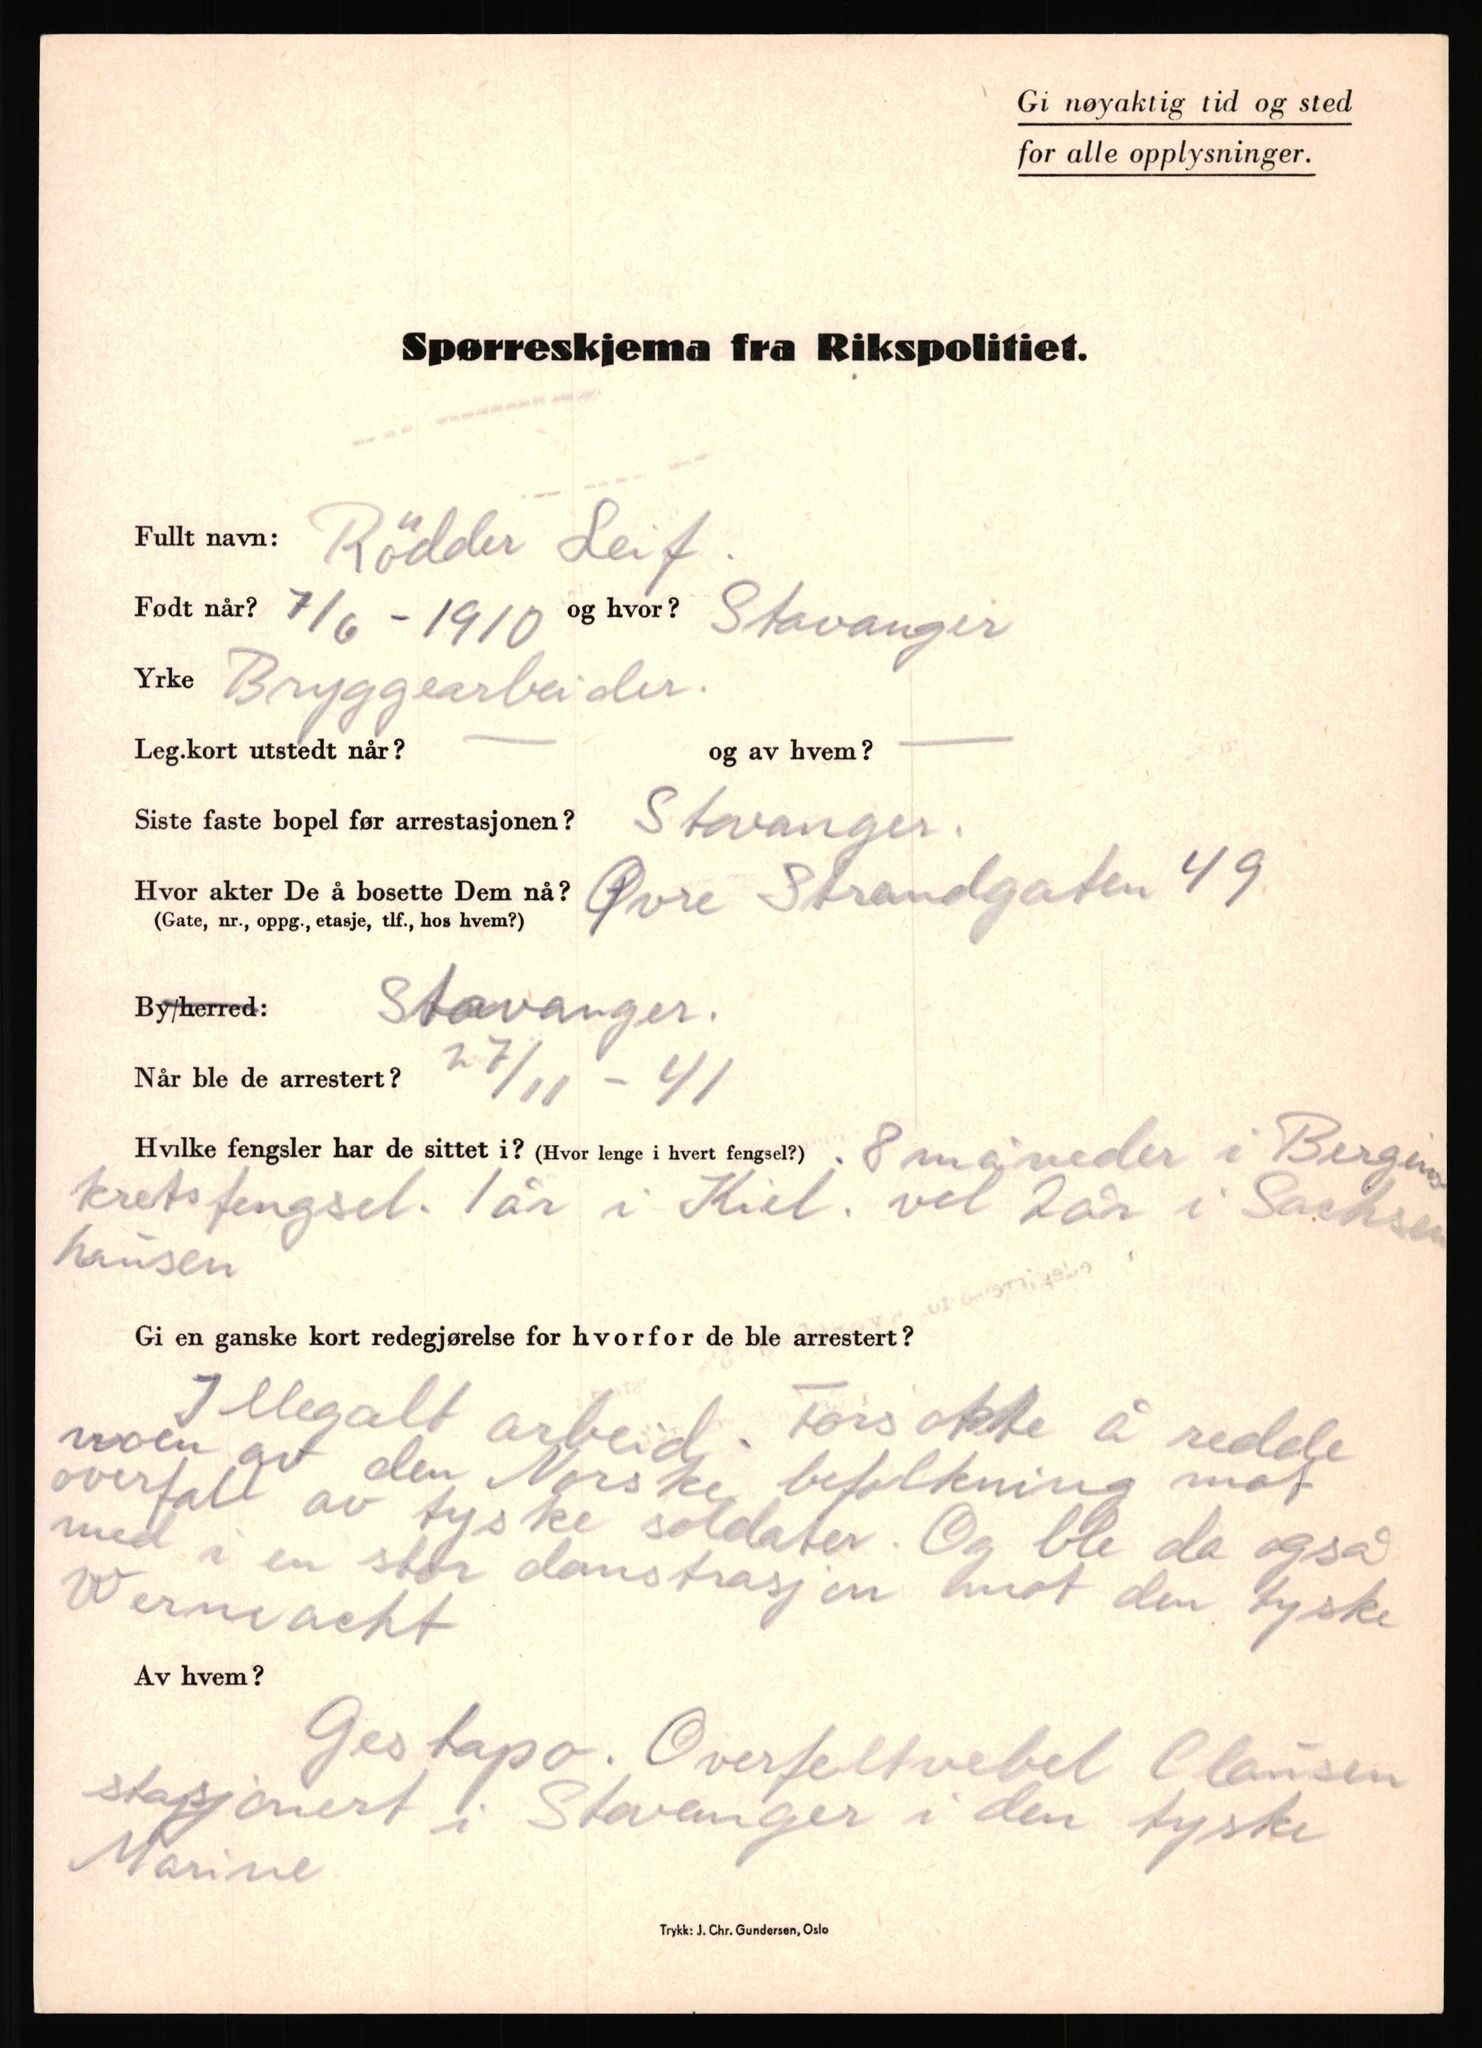 Gi nøyaktig tid og sted
for alle opplysninger.
Spørreskjema fra Rikspolitiet.
Fullt navn: Rödder Leif.
Født når? 7/6 - 1910 og hvor? Stavanger
Yrke Bryggearbeider.
Leg.kort utstedt når? — og av hvem? —
Siste faste bopel før arrestasjonen? Stavanger.
Hvor akter De å bosette Dem nå? Øvre Strandgaten 49
(Gate, nr., oppg., etasje, tlf., hos hvem?)
By/herred: Stavanger.
Når ble de arrestert? 27/11 - 41
Hvilke fengsler har de sittet i? (Hvor lenge i hvert fengsel?) . 8 måneder i Bergens
kretsfengsel. 1 år i Kiel. vel 2 år i Sachsen
hausen
Gi en ganske kort redegjørelse for hvorfor de ble arrestert?
Illegalt arbeid. Forsøkte å redde
noen av den Norske befolkning mot
overfall av tyske soldater. Og ble da også
med i en stor danstrasjon mot den tyske
Wermacht
Av hvem?
Gestapo. Overfeltvebel Clausen
stasjonert i Stavanger i den tyske
Marine
Trykk: J. Chr. Gundersen, Oslo